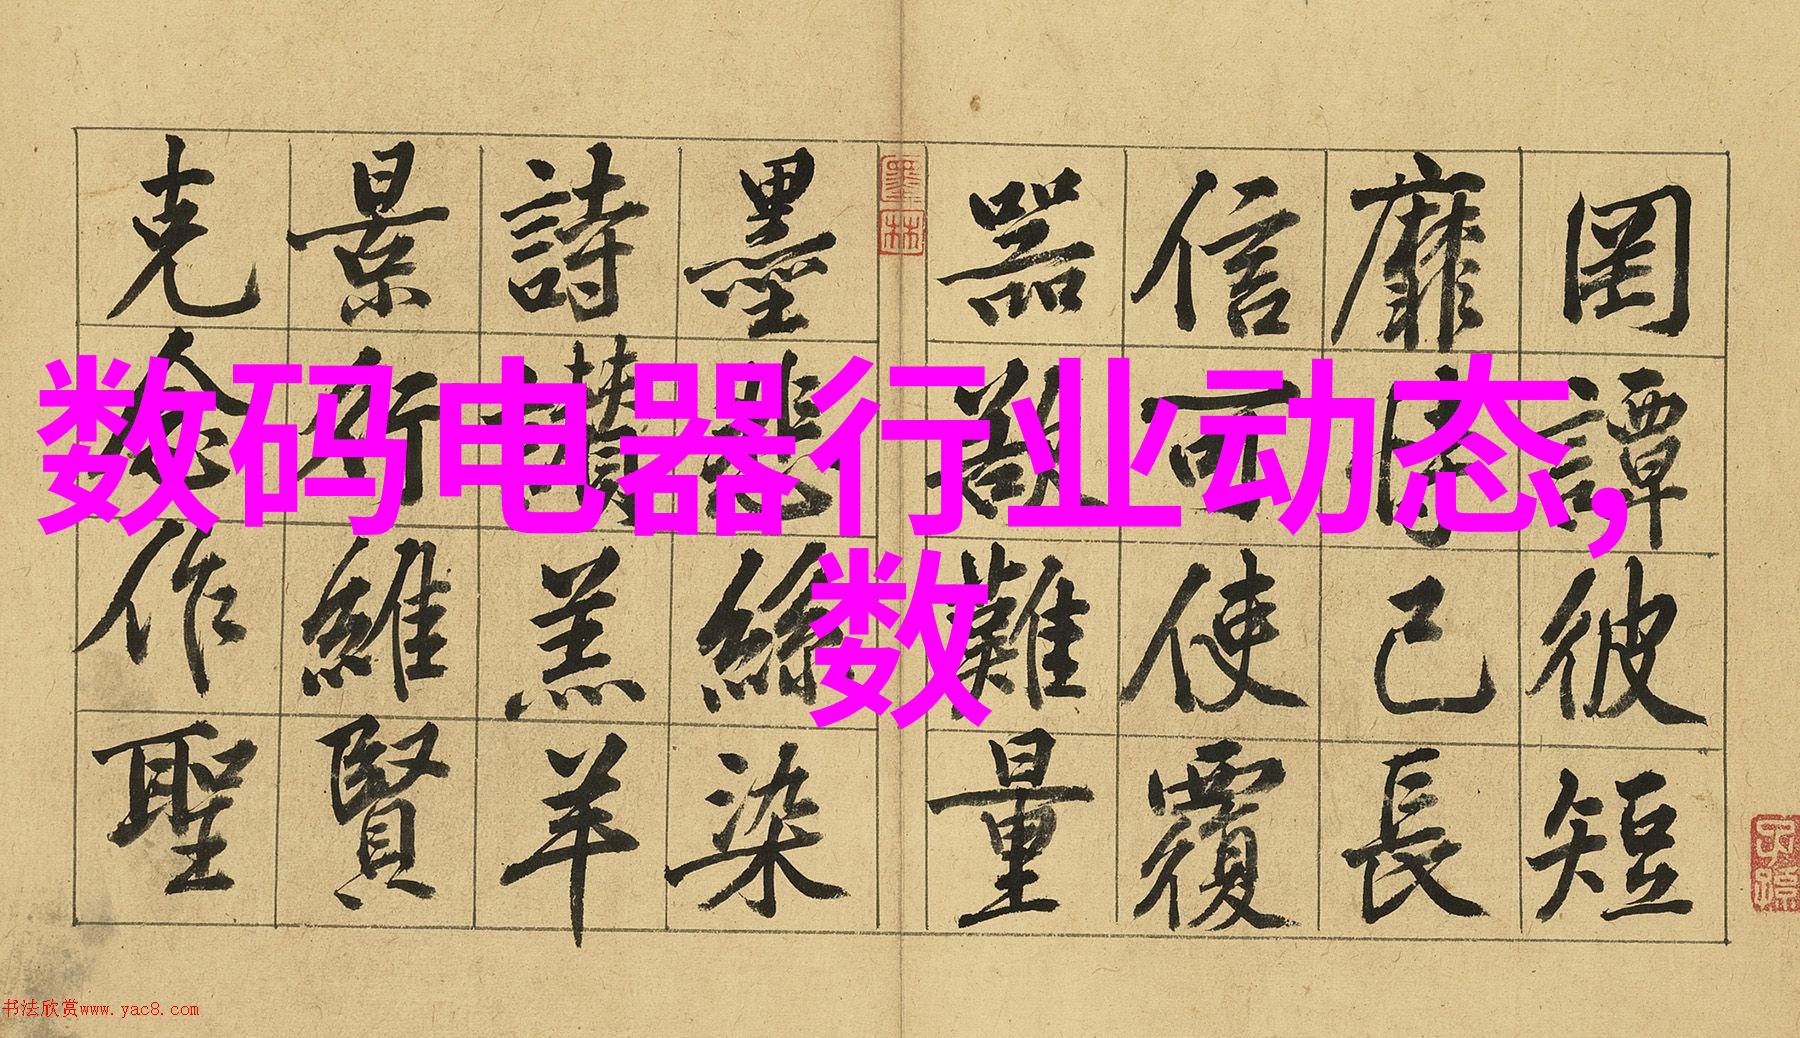 罔譚彼短
靡恃己長
信可使覆
器欲難量
墨林
墨悲絲染
詩讚羔羊
景行維賢
克念作聖
数码电器行业动态,
数
书法欣赏www.yac8.com